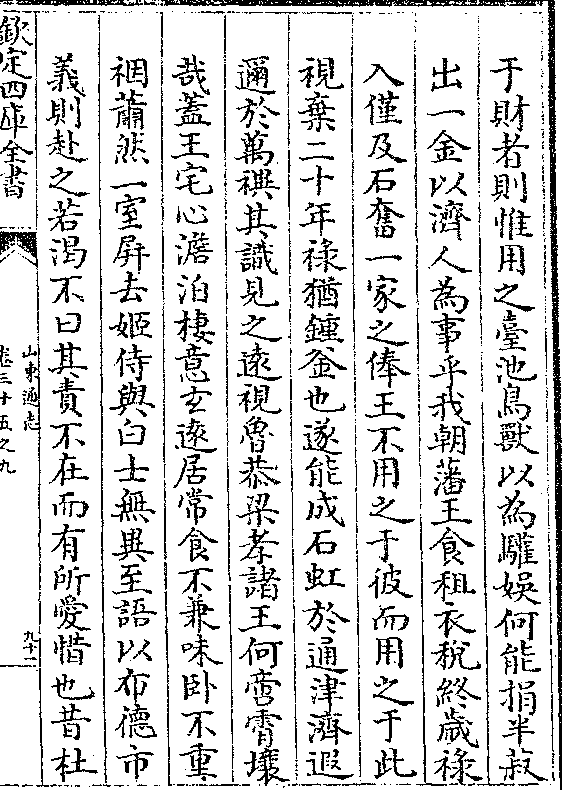 于財者則惟用之臺池鳥獸以為驩娛何能捐半菽
出一金以濟人為事乎我朝藩王食租衣稅終歲祿
入僅及石奮一家之俸王不用之于彼而用之于此
視棄二十年祿猶鍾釜也遂能成石虹於通津濟遐
邇於萬禩其識見之遠視魯恭梁孝諸王何啻霄壤
哉蓋王宅心澹泊棲意玄邃居常食不兼味卧不重
裀蕭然一室屏去姬侍與白士無異至語以布德市
義則赴之若渴不曰其責不在而有所愛惜也昔杜
欽定四庫全書
山東通志
卷三十五之九
九十一